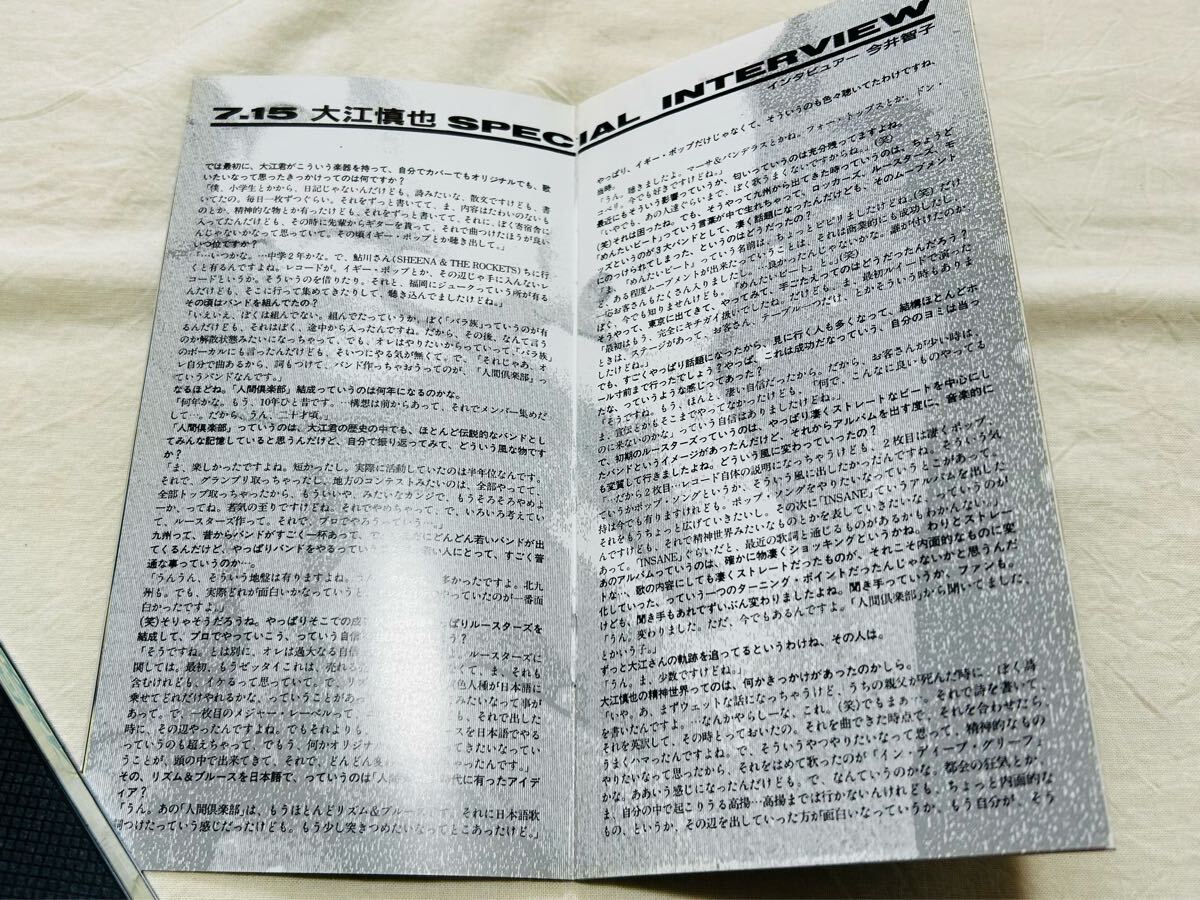 7.15 大江慎也 SPECIAL INTERVIEW
インタビュアー 今井智子
では最初に、大江君がこういう楽器を持って、自分でカバーでもオリジナルでも、歌
いたいなって思ったきっかけってのは何ですか?
「僕、小学生とかから、日記じゃないんだけども、詩みたいな、散文ですけども、書
いてたの。毎日一枚ずつぐらい。それをずっと書いてて、ま、内容はたわいのないも
のとか、精神的な物とか有ったけども、それをずっと書いてて、それに、ぼく寄宿舎に
入ってたんだけども、その時に先輩からギターを貰って、それで曲つけたほうが良い
んじゃないかなって思っていて。その頃イギー・ポップとか聴き出して。」
いつ位ですか?
「…いつかな。…中学2年かな。で、鮎川さん(SHEENA & THE ROCKETS)ちに行
くと有るんですよね。レコードが。イギー・ポップとか、その辺じゃ手に入んないレ
コードというか。そういうのを借りたり。それと、福岡にジュークっていう所が有る
んだけども、そこに行って集めてきたりして、聴き込んでましたけどね。」
その頃はバンドを組んでたの?
「いえいえ、ぼくは組んでない。組んでたっていうか、ぼく「バラ族」っていうのが有
るんだけども、それはぼく、途中から入ったんですね。だから、その後、なんて言う
のか解散状態みたいになっちゃって、でも、オレはやりたいからっていって、「バラ族」
のボーカルにも言ったんだけども、そいつにやる気が無くて、で、「それじゃあ、オ
レ自分で曲あるから、詞もつけて、バンド作っちゃおうってのが、「人間倶楽部」っ
ていうバンドなんです。」
なるほどね。「人間倶楽部」結成っていうのは何年になるのかな。
「何年かな。もう、10年ひと昔です。…構想は前からあって、それでメンバー集めだ
して…。だから、うん、二十才頃。」
「人間倶楽部」っていうのは、大江君の歴史の中でも、ほとんど伝説的なバンドとし
てみんな記憶していると思うんだけど、自分で振り返ってみて、どういう風な物です
か?
「ま、楽しかったですよね。短かったし。実際に活動していたのは半年位なんです。
それで、グランプリ取っちゃったし、地方のコンテストみたいのは、全部やってて、
全部トップ取っちゃったから、もういいや、みたいなカンジで、もうそろそろやめよ
ーか、ってね。若気の至りですけどね。それでやめちゃって、で、いろいろ考えてい
て、ルースターズ作って。それで、プロでやろうっていう…。」
九州って、昔からバンドがすごく一杯あって、で、
にどんどん若いバンドが出
てくるんだけど、やっぱりバンドをやるってい
若い人にとって、すごく普
通な事っていうのか…。
「うんうん、そういう地盤は有りますよね。
多かったですよ。北九
州も。でも、実際どれが面白いかなっていうと
やっていたのが一番面
白かったですよ。」
(笑)そりゃそうだろうね。やっぱりそこでの成
っぱりルースターズを
結成して、プロでやっていこう、っていう自信
う?
「そうですね。とは別に、オレは過大なる自信
ルースターズに
関しては。最初、もうゼッタイこれは、売れる
くて、ま、それも
含むけれども、イケるって思っていて。で、リズ
色人種が日本語に
乗せてどれだけやれるかな、っていうことがあっ
みたいなって事が
あって。で、一枚目のメジャー・レーベルって、
も、それで出した
時に、その辺やったんですよね。でもそれよりも、
ースを日本語でやる
っていうのも超えちゃって、でもう、何かオリジナル
てきたいなってい
うことが、頭の中で出来てきて、それで、どんどん
その、リズム&ブルースを日本語で、っていうのは「人間
時代に有ったアイデ
ィア?
「うん。あの「人間倶楽部」は、もうほとんどリズム&ブルー
す。それに日本語歌
詞つけたっていう感じだったけども。もう少し突きつめたいなってとこあったけど。」
やっぱり、イギー・ポップだけじゃなくて、そういうのも色々聴いてたわけですね、
当時。
「うん。聴きましたよ。マーサ&バンデラスとかね。フォー・トップスとか、ドン・
コベリ。今でも好きですけどね。」
最近にもそういう影響っていうか、匂いっていうのは充分残ってますよね。
「いやでもね、あの人達ぐらいまで、ぼく歌うまくないですからね。」(笑)
(笑)それは困ったね。でも、そうやって九州から出てきた時っていうのは、ちょうど
「めんたいビート」っていう言葉が中で生れちゃって、ロッカーズ、ルースターズ、モ
ッズというのが3大バンドとして、凄く話題になったんだけども、そのムーブメント
にのっけられてしまった、というのはどうだったの?
「ま、「めんたいビート」っていう名前は、ちょっとビビりましたけどね。(笑)だけ
ど、ある程度ムーブメントが出来たっていうことは、それは商業的にも成功したし、
一応お客さんもたくさん入りましたし。…良かったんじゃないかな。誰が付けたのか、
ぼく、今でも知りませんけども。「めんたいビート」。」(笑)
そうやって、東京に出てきて、やってみて、手ごたえってのはどうだったんだろう?
「最初はもう、完全にキチガイ扱いでしたね。だけども。ま、最初ルイードで演った
ときは、ステージがあって、お客さん、テーブル一つだけ、とかそういう時もありま
でも、すごくやっぱり話題になったから、見に行く人も多くなって、結構ほとんどホ
ール寸前まで行ったでしょう?やっぱ、これは成功だなっていう、自分のヨミは当っ
たな、っていうような感じってあった?
「そうですね。もう、ほんと、凄い自信だったから。だから、お客さんが少い時は、
ま、宣伝とかもそこまでやってなかったけども、「何で、こんなに良いものやってる
のに来ないのかな」っていう自信はありましたけどね。」
で、初期のルースターズっていうのは、やっぱり凄くストレートなビートを中心にし
たバンドというイメージがあったんだけど、それからアルバムを出す度に、音楽的に
も変質して行きましたよね。どういう風に変わっていったの?
「…だから2枚目…レコード自体の説明になっちゃうけども、2枚目は凄くポップ、
ていうかポップ・ソングというか、そういう風に出したかったんですね。そういう気
持は今でも有りますけれどね。ポップ・ソングをやりたいなっていうとこがあって。
それをもうちょっと広げていきたいし。その次に「INSANE」ていうアルバムを出した
んですけども、それで精神世界みたいなものとかを表していきたいな、っていうのが
あって。「INSANE」ぐらいだと、最近の歌詞と通じるものがあるかもわかんない。」
あのアルバムっていうのは、確かに物凄くショッキングというかね。わりとストレー
トな…、歌の内容にしても凄くストレートだったものが、それこそ内面的なものに変
化していった、っていう一つのターニング・ポイントだったんじゃないかと思うんだ
けども、聞き手もあれでずいぶん変わりましたよね。聞き手っていうか、ファンも。
「うん。変わりました。ただ、今でもあるんですよ。「人間倶楽部」から聞いてました、
とかいう子。」
ずっと大江さんの軌跡を追ってるというわけね、その人は。
「うん。ま、少数ですけどね。」
大江慎也の精神世界ってのは、何かきっかけがあったのかしら。
「いや、あ、まずウェットな話になっちゃうけど、うちの親父が死んだ時に、ぼく詩
を書いたんですよ。…なんかやらしーな、これ。(笑)でもまぁ…。それで詩を書いて、
それを英訳して、その時とっておいたの。それを曲できた時点で、それを合わせたら、
うまくハマったんですよね。で、そういうやつやりたいなって思って、精神的なもの
やりたいなって思ったから、それをはめて歌ったのが「イン・ディープ・グリーフ」
かな。ああいう感じになったんだけども。で、なんていうのかな。都会の狂気とか、
ま、自分の中で起こりうる高揚…高揚までは行かないんけれども、ちょっと内面的な
もの、というか、その辺を出していった方が面白いなっていうか、もう自分が、そう